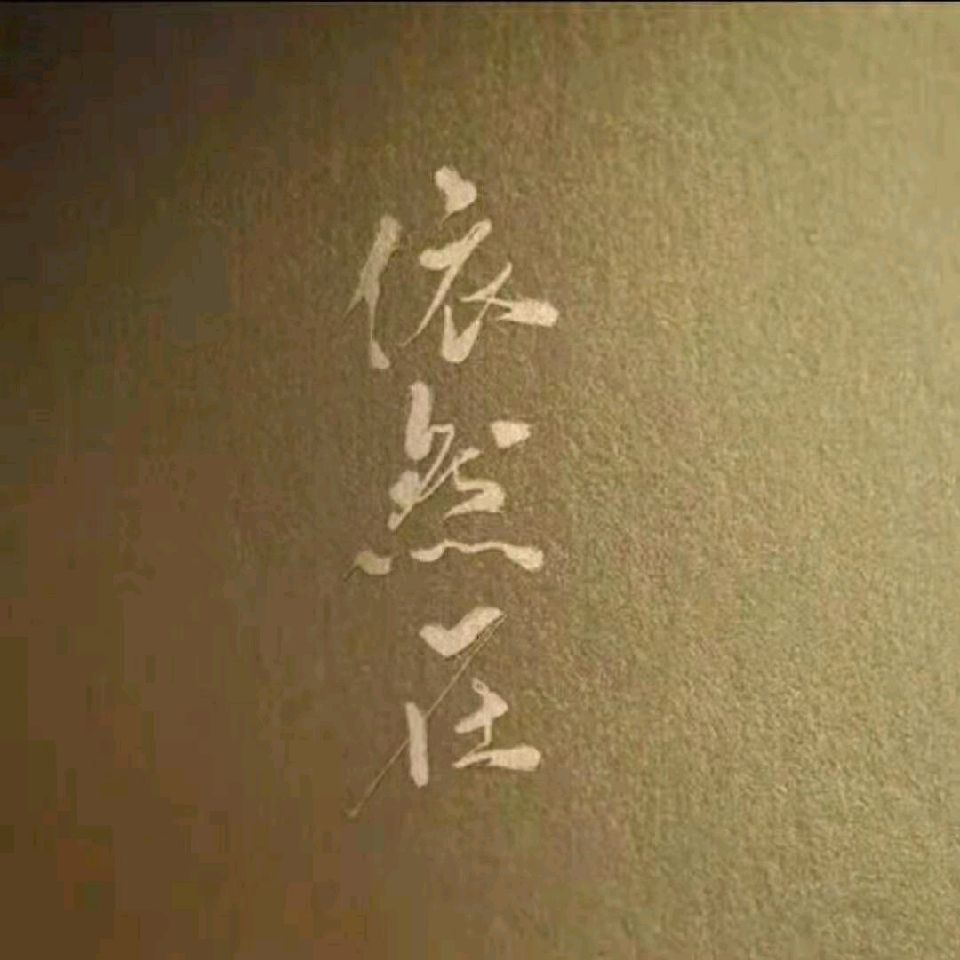 依然在